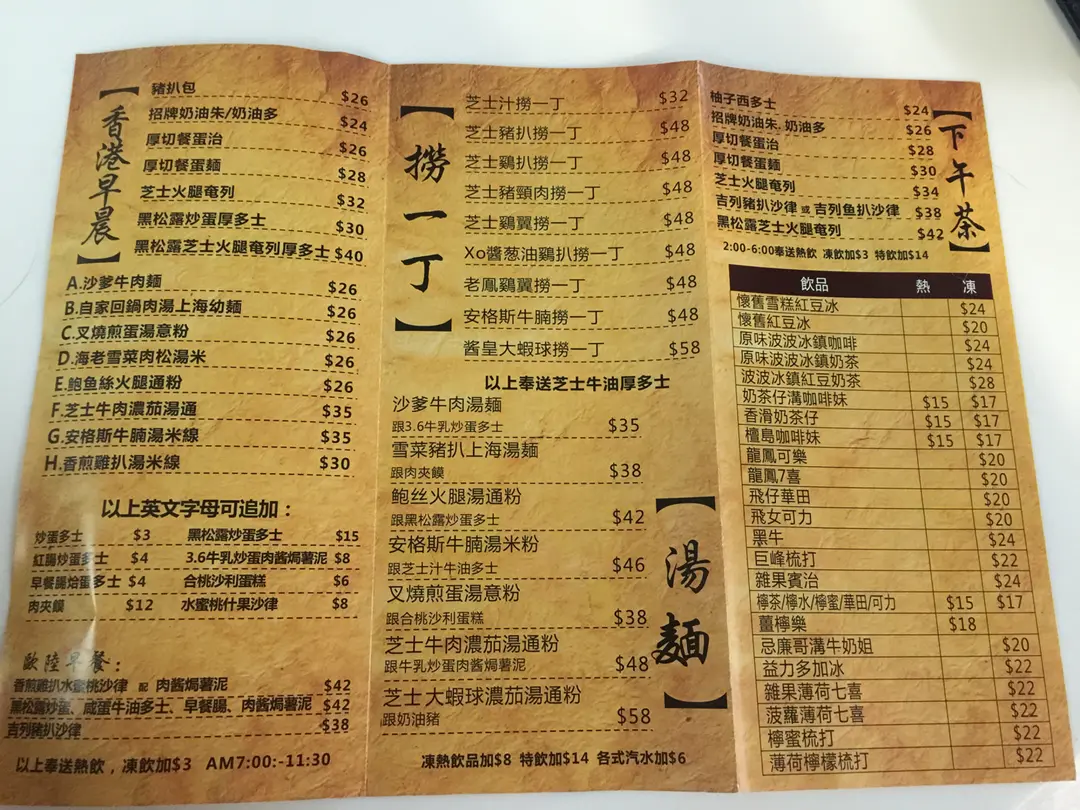 【香港早晨】
豬扒包 $26
招牌奶油朱/奶油多 $24
厚切餐蛋治 $26
厚切餐蛋麵 $28
芝士火腿奄列 $32
黑松露炒蛋厚多士 $30
黑松露芝士火腿奄列厚多士 $40
A.沙爹牛肉麵 $26
B.自家回鍋肉湯上海幼麵 $26
C.叉燒煎蛋湯意粉 $26
D.海老雪菜肉松湯米 $26
E.鮑魚絲火腿通粉 $26
F.芝士牛肉濃茄湯通 $35
G.安格斯牛腩湯米線 $35
H.香煎雞扒湯米線 $30
以上英文字母可追加：
炒蛋多士 $3 黑松露炒蛋多士 $15
紅腸炒蛋多士 $4 3.6牛乳炒蛋肉酱焗薯泥 $8
早餐腸炲蛋多士 $4 合桃沙利蛋糕 $6
肉夾饃 $12 水蜜桃什果沙律 $8
歐陸早餐：
香煎雞扒水蜜桃沙律 配 肉酱焗薯泥 $42
黑松露炒蛋、咸蛋牛油多士、早餐腸、肉酱焗薯泥 $42
吉列豬扒沙律 $38
以上奉送熱飲，凍飲加$3 AM7:00:-11:30
【撈一丁】
芝士汁撈一丁 $32
芝士豬扒撈一丁 $48
芝士鷄扒撈一丁 $48
芝士豬頸肉撈一丁 $48
芝士鷄翼撈一丁 $48
Xo醬葱油鷄扒撈一丁 $48
老鳳鷄翼撈一丁 $48
安格斯牛腩撈一丁 $48
酱皇大蝦球撈一丁 $58
以上奉送芝士牛油厚多士
【湯麵】
沙爹牛肉湯麵
跟3.6牛乳炒蛋多士 $35
雪菜豬扒上海湯麵
跟肉夾饃 $38
鮑丝火腿湯通粉
跟黑松露炒蛋多士 $42
安格斯牛腩湯米粉
跟芝士汁牛油多士 $46
叉燒煎蛋湯意粉
跟合桃沙利蛋糕 $38
芝士牛肉濃茄湯通粉
跟牛乳炒蛋肉酱焗薯泥 $48
芝士大蝦球濃茄湯通粉
跟奶油豬 $58
凍熱飲品加$8 特飲加$14 各式汽水加$6
【下午茶】
柚子西多士 $24
招牌奶油朱.奶油多 $26
厚切餐蛋治 $28
厚切餐蛋麵 $30
芝士火腿奄列 $34
吉列豬扒沙律 或 吉列魚扒沙律 $38
黑松露芝士火腿奄列 $42
2:00-6:00奉送熱飲 凍飲加$3 特飲加$14
飲品 熱 凍
懷舊雪糕紅豆冰 $24
懷舊紅豆冰 $20
原味波波冰鎮咖啡 $24
原味波波冰鎮奶茶 $24
波波冰鎮紅豆奶茶 $28
奶茶仔溝咖啡妹 $15 $17
香滑奶茶仔 $15 $17
檀島咖啡妹 $15 $17
龍鳳可樂 $20
龍鳳7喜 $20
飛仔華田 $20
飛女可力 $20
黑牛 $24
巨峰梳打 $22
雜果賓治 $24
檸茶/檸水/檸蜜/華田/可力 $15 $17
薑檸樂 $18
忌廉哥溝牛奶姐 $20
益力多加冰 $22
雜果薄荷七喜 $22
菠蘿薄荷七喜 $22
檸蜜梳打 $22
薄荷檸檬梳打 $22